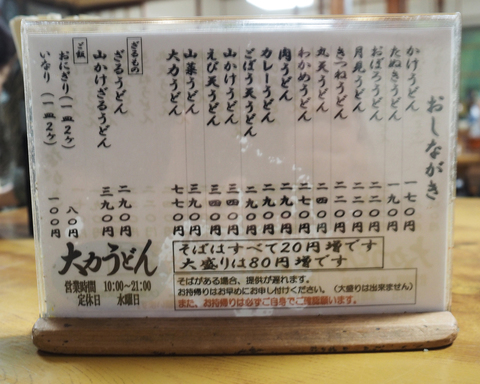 おしながき
かけうどん 一七〇円
たぬきうどん 一九〇円
おぼろうどん 二二〇円
月見うどん 二二〇円
きつねうどん 二二〇円
丸天うどん 二四〇円
わかめうどん
肉うどん 二九〇円
カレーうどん 二九〇円
ごぼう天うどん
山かけうどん 三四〇円
えび天うどん 三四〇円
山菜うどん 三九〇円
大力うどん 七七〇円
ざるもの
ざるうどん 二九〇円
山かけざるうどん 三九〇円
ご飯
おにぎり(一皿2ヶ) 八〇円
いなり(一皿2ヶ) 一〇〇円
そばはすべて20円増です
大盛りは80円増です
そばがある場合、提供が遅れます。
お持帰りはお早めにお申し付けください。(大盛りは出来ません)
また、お持帰りはなずご自身でご確認願います。
大力うどん
営業時間 10:00~21:00
定休日 水曜日